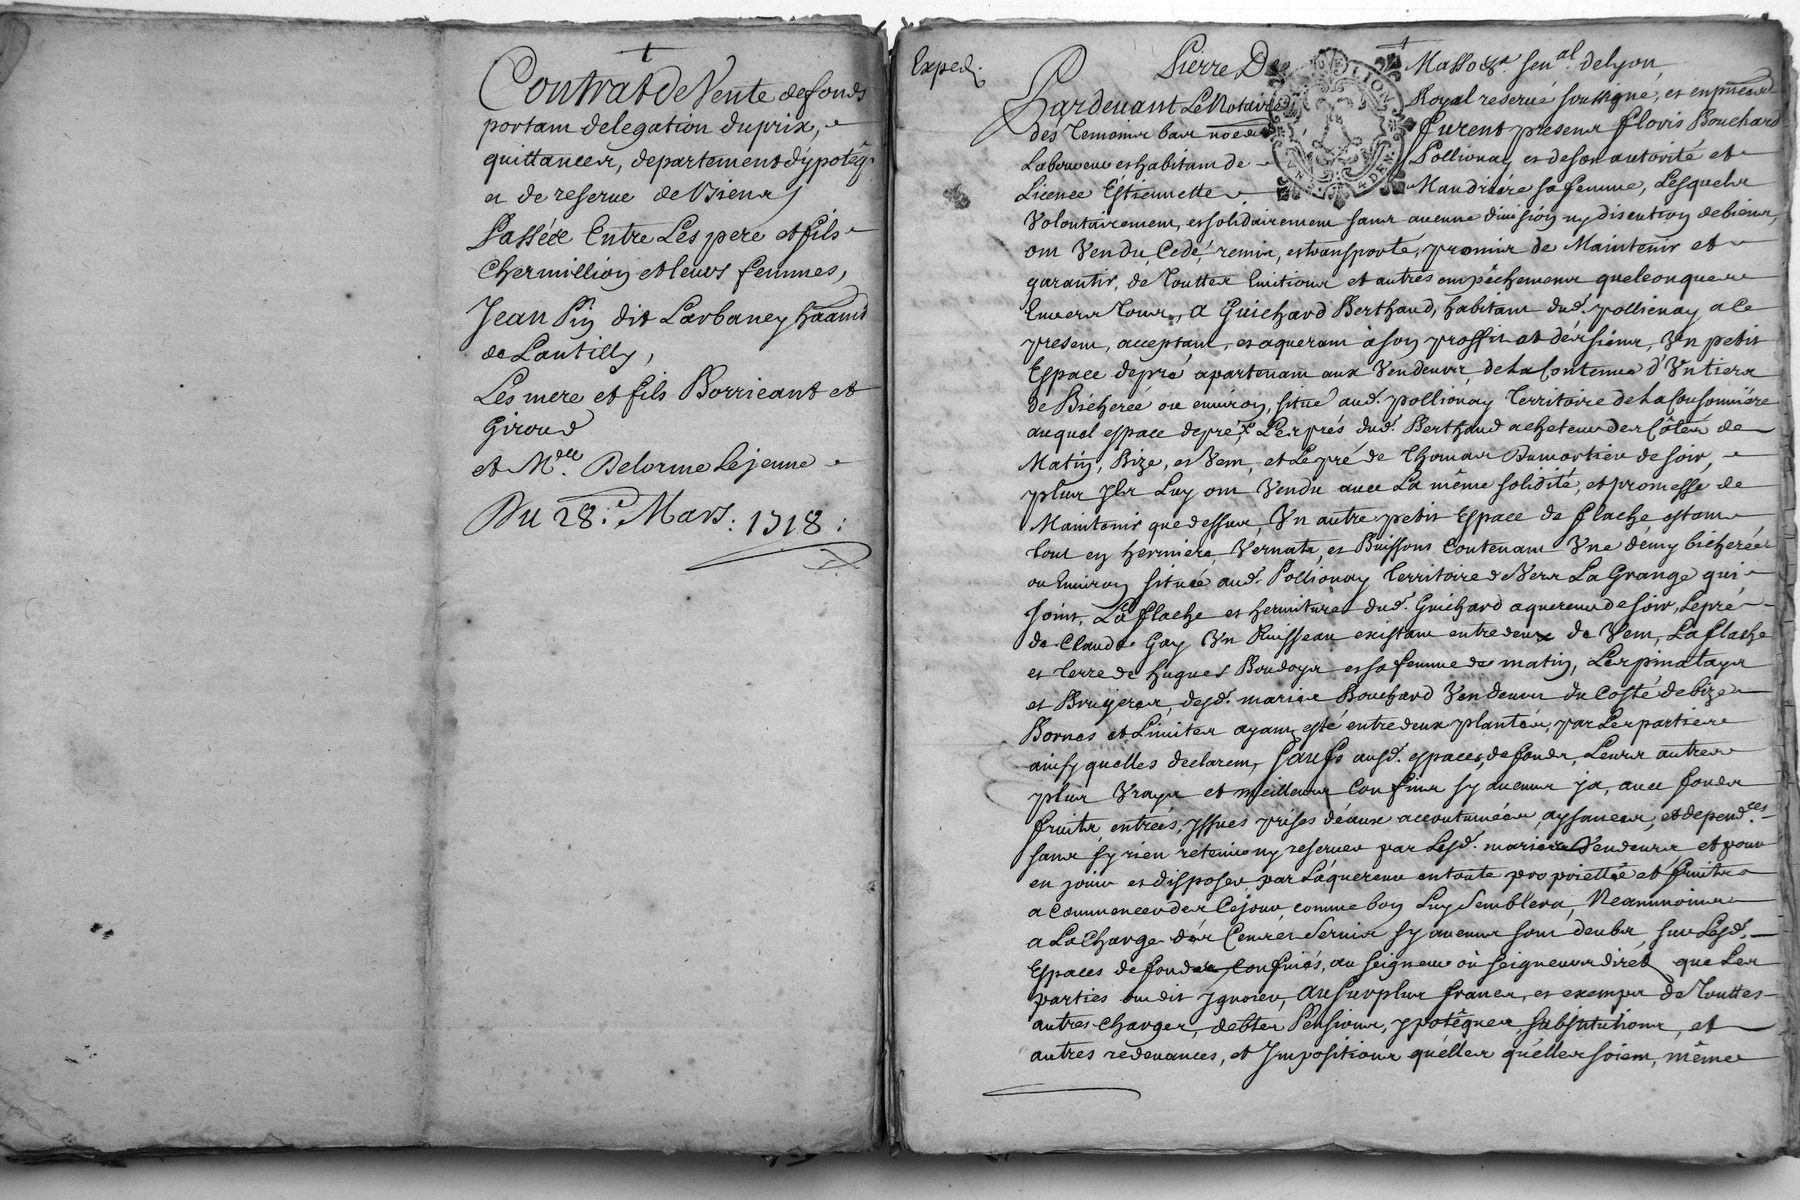 Contrat de Vente de fonds
portant delegation du prix,
quittances, departement d'ypoteq.
et de reserve de Biens
Passée Entre Les pere et fils
Chermillion et leurs femmes,
Jean Pin dit Larbaney
de Lantilly,
Les mere et fils Borricant et
Giroud
et Mdelle Delorme Lejeune
Du 28e. Mars: 1718:
Exped.
Pierre De Masso &a. senal. de Lyon,
Pardevant Le Notaire Royal reservé soussigné, et en presence
des Temoins bas només furent presens Floris Bouchard
Laboureur et habitant de Pollionay et de son autorité et
Licence Estiennette Maudriere sa femme, Lesquels
Volontairement, et solidairement sans aucune division ny discution de biens,
ont Vendu, Cedé, remis, et transporté, promis de Maintenir et
garantir, de Touttes Evitions et autres empêchemens quelconques
Envers Tous, A Guichard Berthaud, habitant dud. pollionay a ce
present, acceptant, et aquerant à son proffit et des siens, Un petit
Espace de pré apartenant aux Vendeurs, de la Contenue d'Un tiers
de Bicherée ou environ, situé aud. pollionay Territoire de la Consonniere
auquel espace de pré, Les prés dud. Berthaud acheteur des Côtés de
Matin, Bize, et Vent, et Le pré de Thomas Dumortier de soir,
plus Ils Luy ont Vendu avec La même solidité, et promesse de
Maintenir que dessus, Un autre petit Espace de flache estant
tout en hermiere, Vernats, et Buissons Contenant Une demy bicherée
ou Environ située aud. Pollionay Territoire de Vers La Grange qui
Joint, La flache et hermitures dud. Guichard aquereur de soir, Le pré
de Claude Gay Un Ruisseau existant entre deux de Vent, La flache
et Terre de hugues Boudoya et sa femme de matin, Les pinatays
et Bruyeres, desd. maries Bouchard Vendeurs du Costé de bize
Bornes et Limites ayant esté entre deux plantées, par Les parties
ainsy quelles declarent, Saufs ausd. espaces de fonds, Leurs autres
plus Vrays et meilleurs Confins sy aucuns ja, avec fonds
fruits, entrées, yssues prises d'eaux accoutumées, aysances, et depend.ces
sans sy rien retenir ny reserver par Lesd. maries Vendeurs et pour
en jouir et disposer par L'aquereur en toute proprietté et fruits
a Commencer des Ce jour, comme bon Luy Semblera, Neanmoins
a La Charge des Cens et Servis sy aucuns sont deubs, sur Lesd.
Espaces de fonds Confinés, au seigneur ou seigneurs direts que Les
parties ont dit Ignorer, Au Surplus francs, et exempts de Touttes
autres charges, debtes Pensions, ypotêques, substitutions, et
autres redevances, et Impositions quélles quélles soient, même